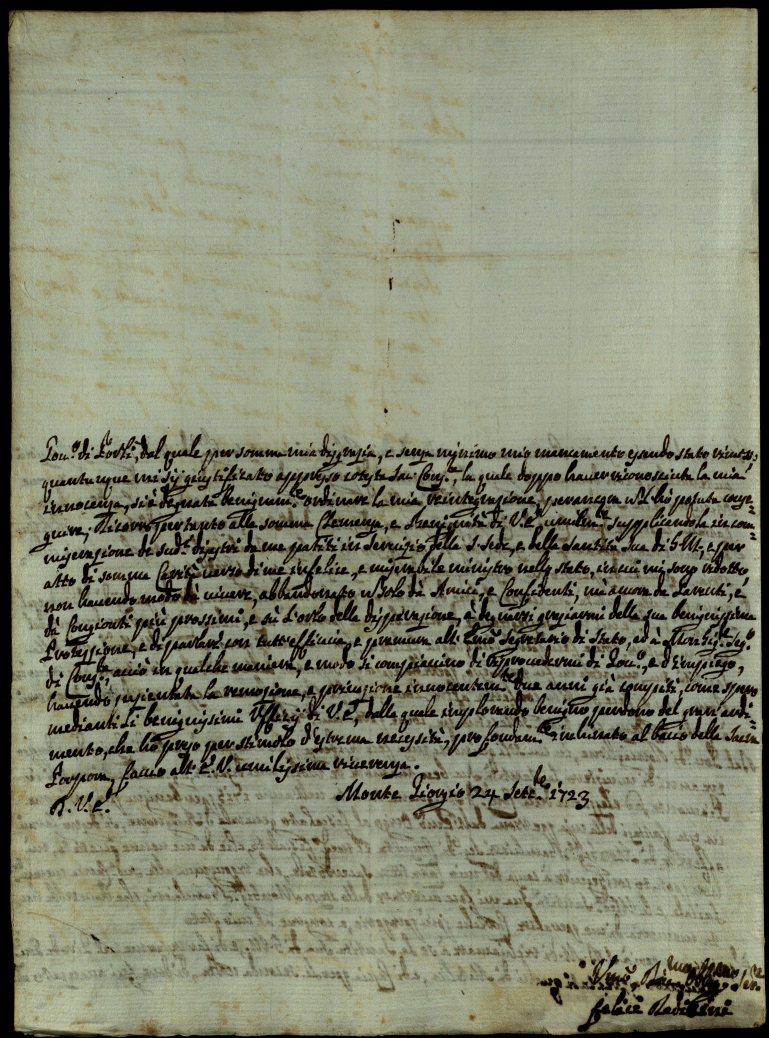 Gou.º di Forlì, dal quale per somma mia disgrazia, e senza minimo mio mancamento essendo stato rimosso,
quantunque mi sij giustificato appresso cotesta Sac: Cong.ne, la quale doppo hauer riconosciuta la mia
innocenza, si è degnata benignam.te ordinare la mia reintegrazione, per anco non l'hò potuta conse-
guire, Ricorro pertanto alla somma Clemenza, e benignità di V. E. umilm.te supplicandola in com-
miserazione de sud.i disastri da me patiti in seruizio della S. Sede, e della Santità Sua di N. S., e per
atto di somma Carità uerso di me infelice, e miserabile ministro nello stato, in cui mi sono ridotto,
non hauendo modo di uiuere, abbandonato non solo dà Amici, e Confidenti, mà ancora da Parenti, e
dà Congionti più prossimi, e sù l'orlo della disperazione, à degnarsi graziarmi della sua benignissima
Protezzione, e di parlare con tutt'efficacia, e premura all' Em.º Segretario di Stato, ed à Monsig.r Seg.º
di Cong.ne, acciò in qualche maniera, e modo si compiacino di approuedermi di Gou.º, e d'impiego,
hauendo pazientata la remozione, e priuazione innocentem.te due anni già compiti, come spero
medianti li benignissimi Vffizij di V. E., dalla quale implorando benigno perdono del grand'ardi-
mento, che hò preso per stimolo d'estrema necessità, profondam.te inchinato al bacio della Sacra
Porpora, faccio all' E. V. umilissima riuerenza.
Monte Giorgio 24 Sett.bre 1723
D. V. E.
Felice